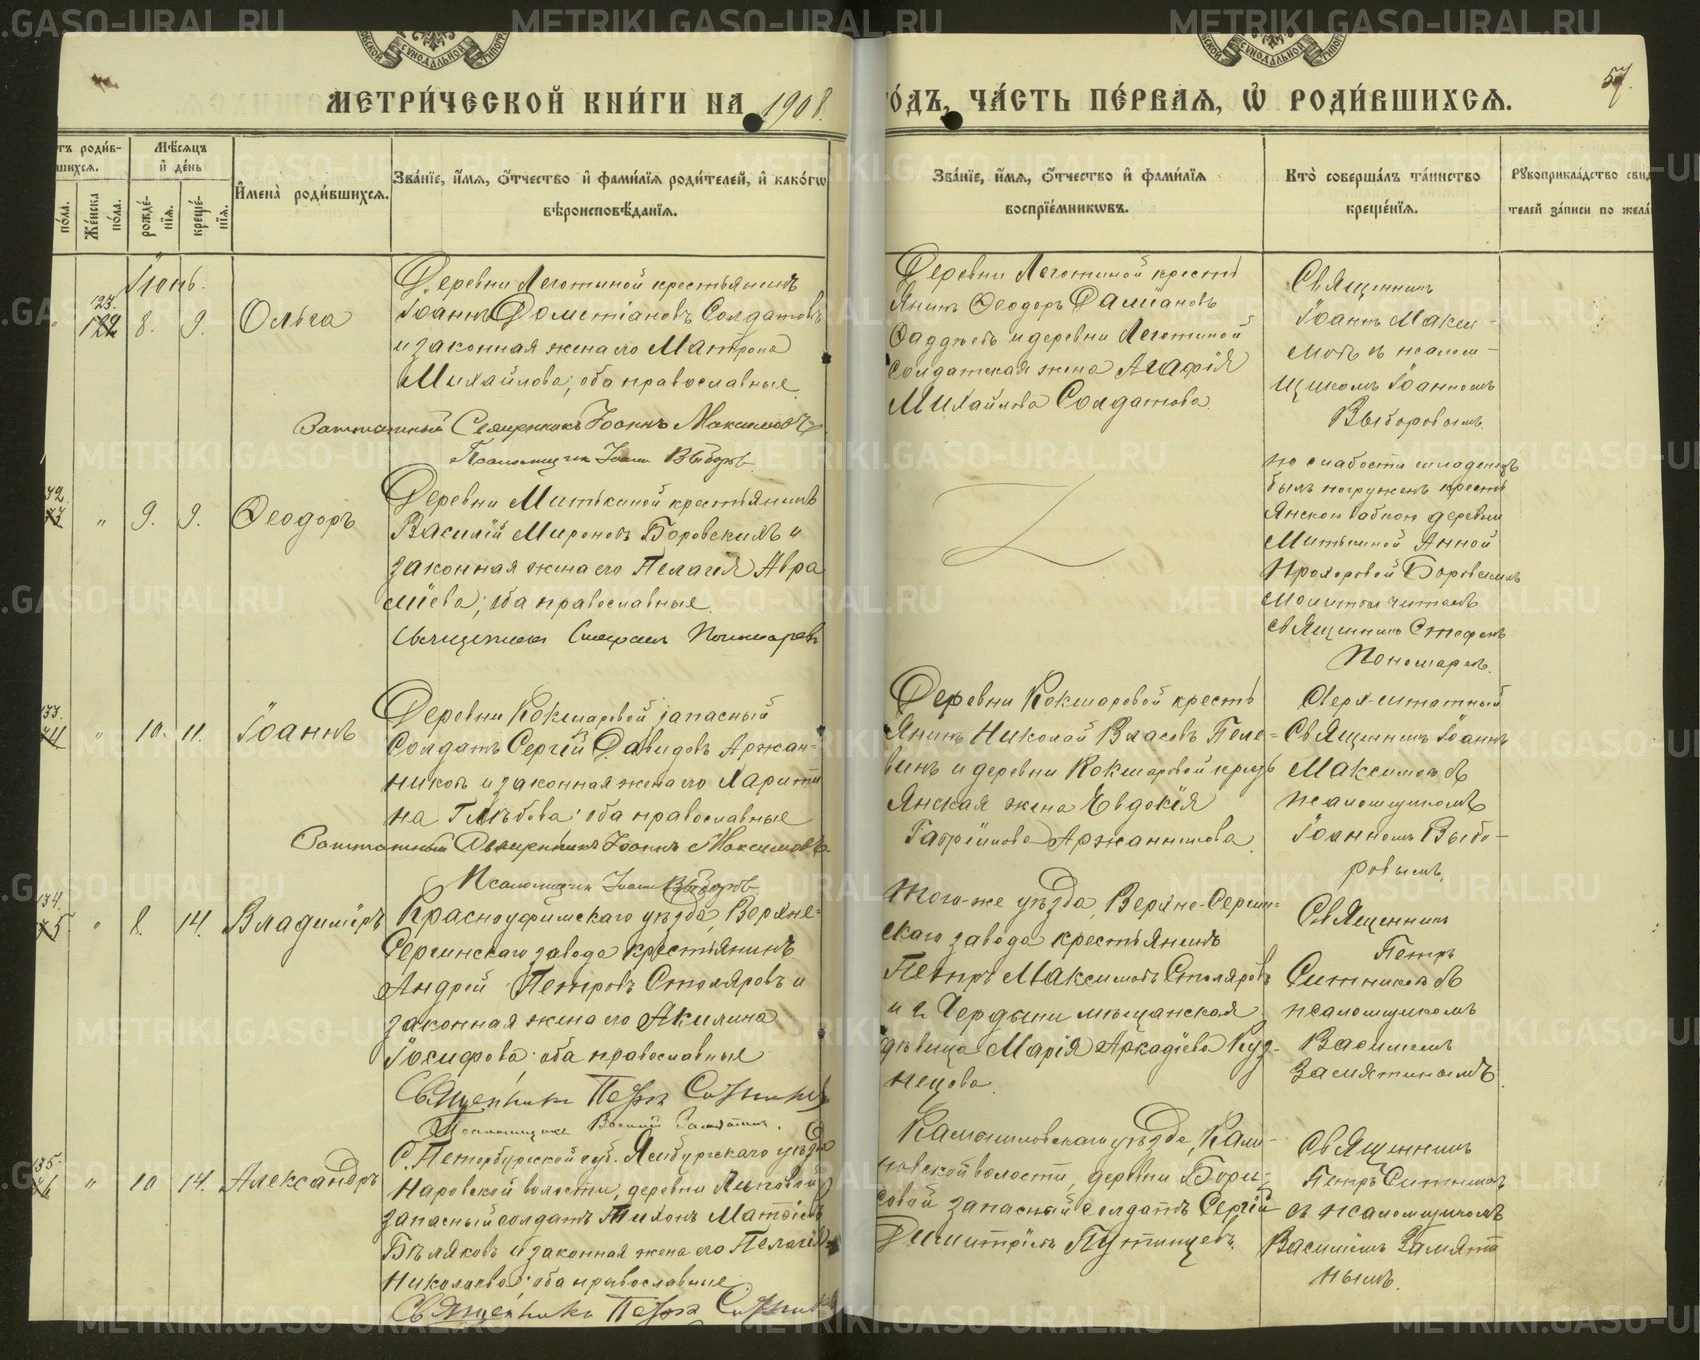 МЕТРИ́ЧЕСКОЙ КНИ́ГИ НА 1908.
ОДЪ, ЧА́СТЬ ПЕ́РВАЯ, Ѡ РОДИ́ВШИХСЯ.
57.
тъ роди́в-
шихся.
Мѣ́сяцъ
и де́нь
по́ла.
Же́нска
по́ла.
рожде́-
нїя.
креще́-
нїя.
Имена̀ роди́вшихся.
Зва́нїе, и́мя, о́тчество и фами́лїя роди́телей, и како́гѡ
вѣроисповѣ́данїя.
Зва́нїе, и́мя, о́тчество и фами́лїя
воспрїе́мникѡвъ.
Кто̀ соверша́лъ та́инство
креще́нїя.
Рꙋкоприкла́дство сви
телей за́писи по жела
Іюнь.
8. 9. Ольга
Деревни Леготиной крестьянинъ
Іоаннъ Дометіановъ Солдатовъ
и законная жена его Матрона
Михайлова; оба православные
Заштатный Священникъ Іоаннъ Максимовъ
Псаломщикъ Іоаннъ Выборовъ
Деревни Леготиной кресть
янинъ Ѳеодоръ Даміановъ
Ѳаддѣевъ и деревни Леготиной
солдатская жена Агафія
Михайлова Солдатова.
Священникъ
Іоаннъ Макси-
мовъ съ псалом-
щикомъ Іоанномъ
Выборовымъ
132.
" 9. 9. Ѳеодоръ
Деревни Митькиной крестьянинъ
Василій Мироновъ Боровскихъ и
законная жена его Пелагія Авра
міева; оба православные.
Священникъ Стефанъ Пономаревъ
по слабости младенецъ
былъ погруженъ кресть
янскою бабкою деревни
Митькиной Анной
Прохоровой Боровскихъ
Молитвы читалъ
священникъ Стефанъ
Пономаревъ.
133.
" 10. 11. Іоаннъ
Деревни Кокшаровой запасный
Солдатъ Сергій Давидовъ Аржан-
никовъ и законная жена его Харити
на Глѣбова; оба православные
Заштатный Священникъ Іоаннъ Максимовъ
Псаломщикъ Іоаннъ Выборовъ.
Деревни Кокшаровой кресть
янинъ Николай Власовъ Пеле-
винъ и деревни Кокшаровой кресть
янская жена Евдокія
Гавріилова Аржанникова.
Сверхштатный
Священникъ Іоаннъ
Максимовъ съ
псаломщикомъ
Іоанномъ Выбо-
ровымъ.
134.
" 8. 14. Владиміръ
Красноуфимскаго уѣзда, Верхне-
Сергинскаго завода крестьянинъ
Андрей Петровъ Столяровъ и
законная жена его Акилина
Іосифова; оба православные
Священникъ Петръ Ситниковъ
Псаломщикъ Василій Замятинъ.
того-же уѣзда, Верхне-Сергин-
скаго завода крестьянинъ
Петръ Максимовъ Столяровъ
и г. Чердыни мѣщанская
дѣвица Марія Аркадіева Куз-
нецова.
Священникъ
Петръ
Ситниковъ съ
псаломщикомъ
Василіемъ
Замятинымъ.
135.
" 10 14. Александръ
С.Петербургской губ. Ямбургскаго уѣзда
Наровской волости, деревни Липовой
запасный солдатъ Тихонъ Матвіевъ
Бѣляковъ и законная жена его Пелагія
Николаева; оба православные.
Священникъ Петръ Ситниковъ
Камышловскаго уѣзда, Кали-
новской волости, деревни Бори-
совой запасный солдатъ Сергій
Димитріевъ Путинцевъ.
Священникъ
Петръ Ситниковъ
съ псаломщикомъ
Василіемъ Замяти
нымъ.
METRIKI.GASO-URAL.RU